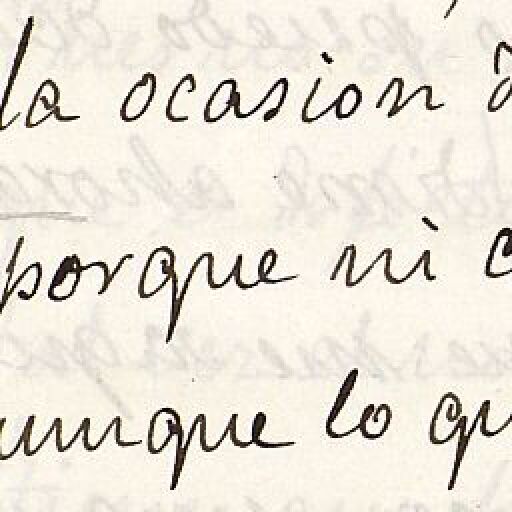 la ocasion
porque ni
unque lo qu